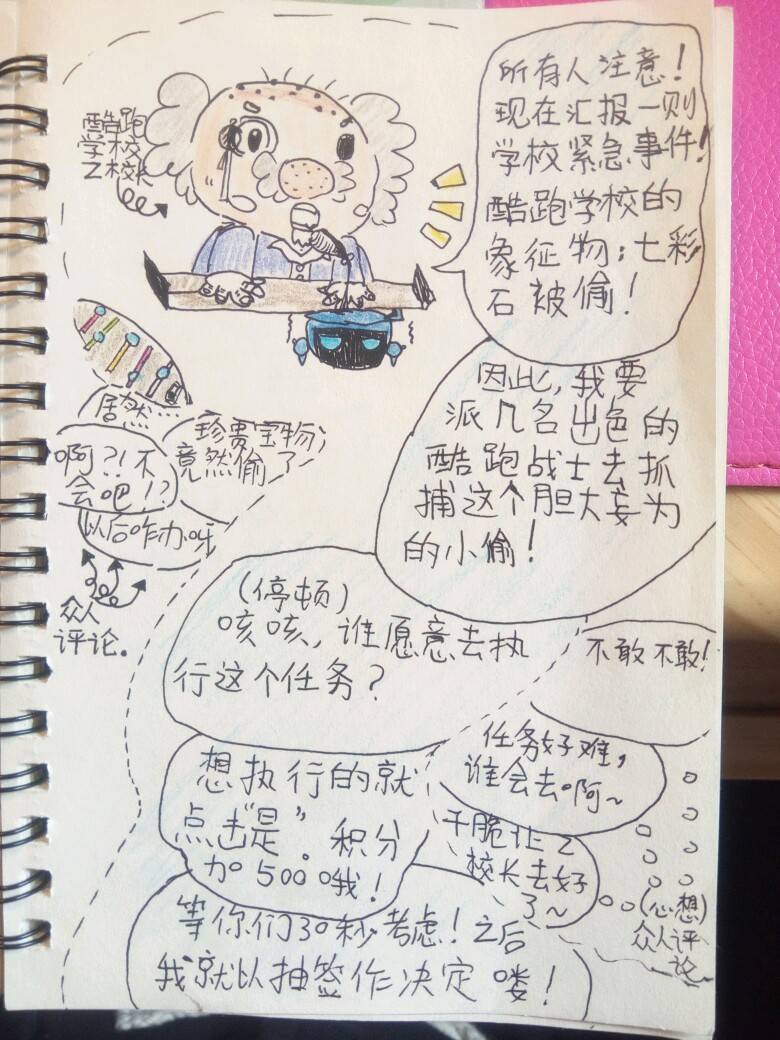 酷跑
学校
Z校长
所有人注意！
现在汇报一则
学校紧急事件！
酷跑学校的
象征物：七彩
石被偷！
因此，我要
派几名出色的
酷跑战士去抓
捕这个胆大妄为
的小偷！
居然
珍贵宝物，
竟然偷了
啊?!不
会吧!?
以后咋办呀
众人
评论。
（停顿）
咳咳，谁愿意去执
行这个任务？
不敢不敢！
任务好难，
谁会去啊~
想执行的就
点击“是”。积分
加5000哦！
干脆让Z
校长去好
了~
（心想）
众人评
论
等你们30秒考虑！之后
我就以抽签作决定喽！